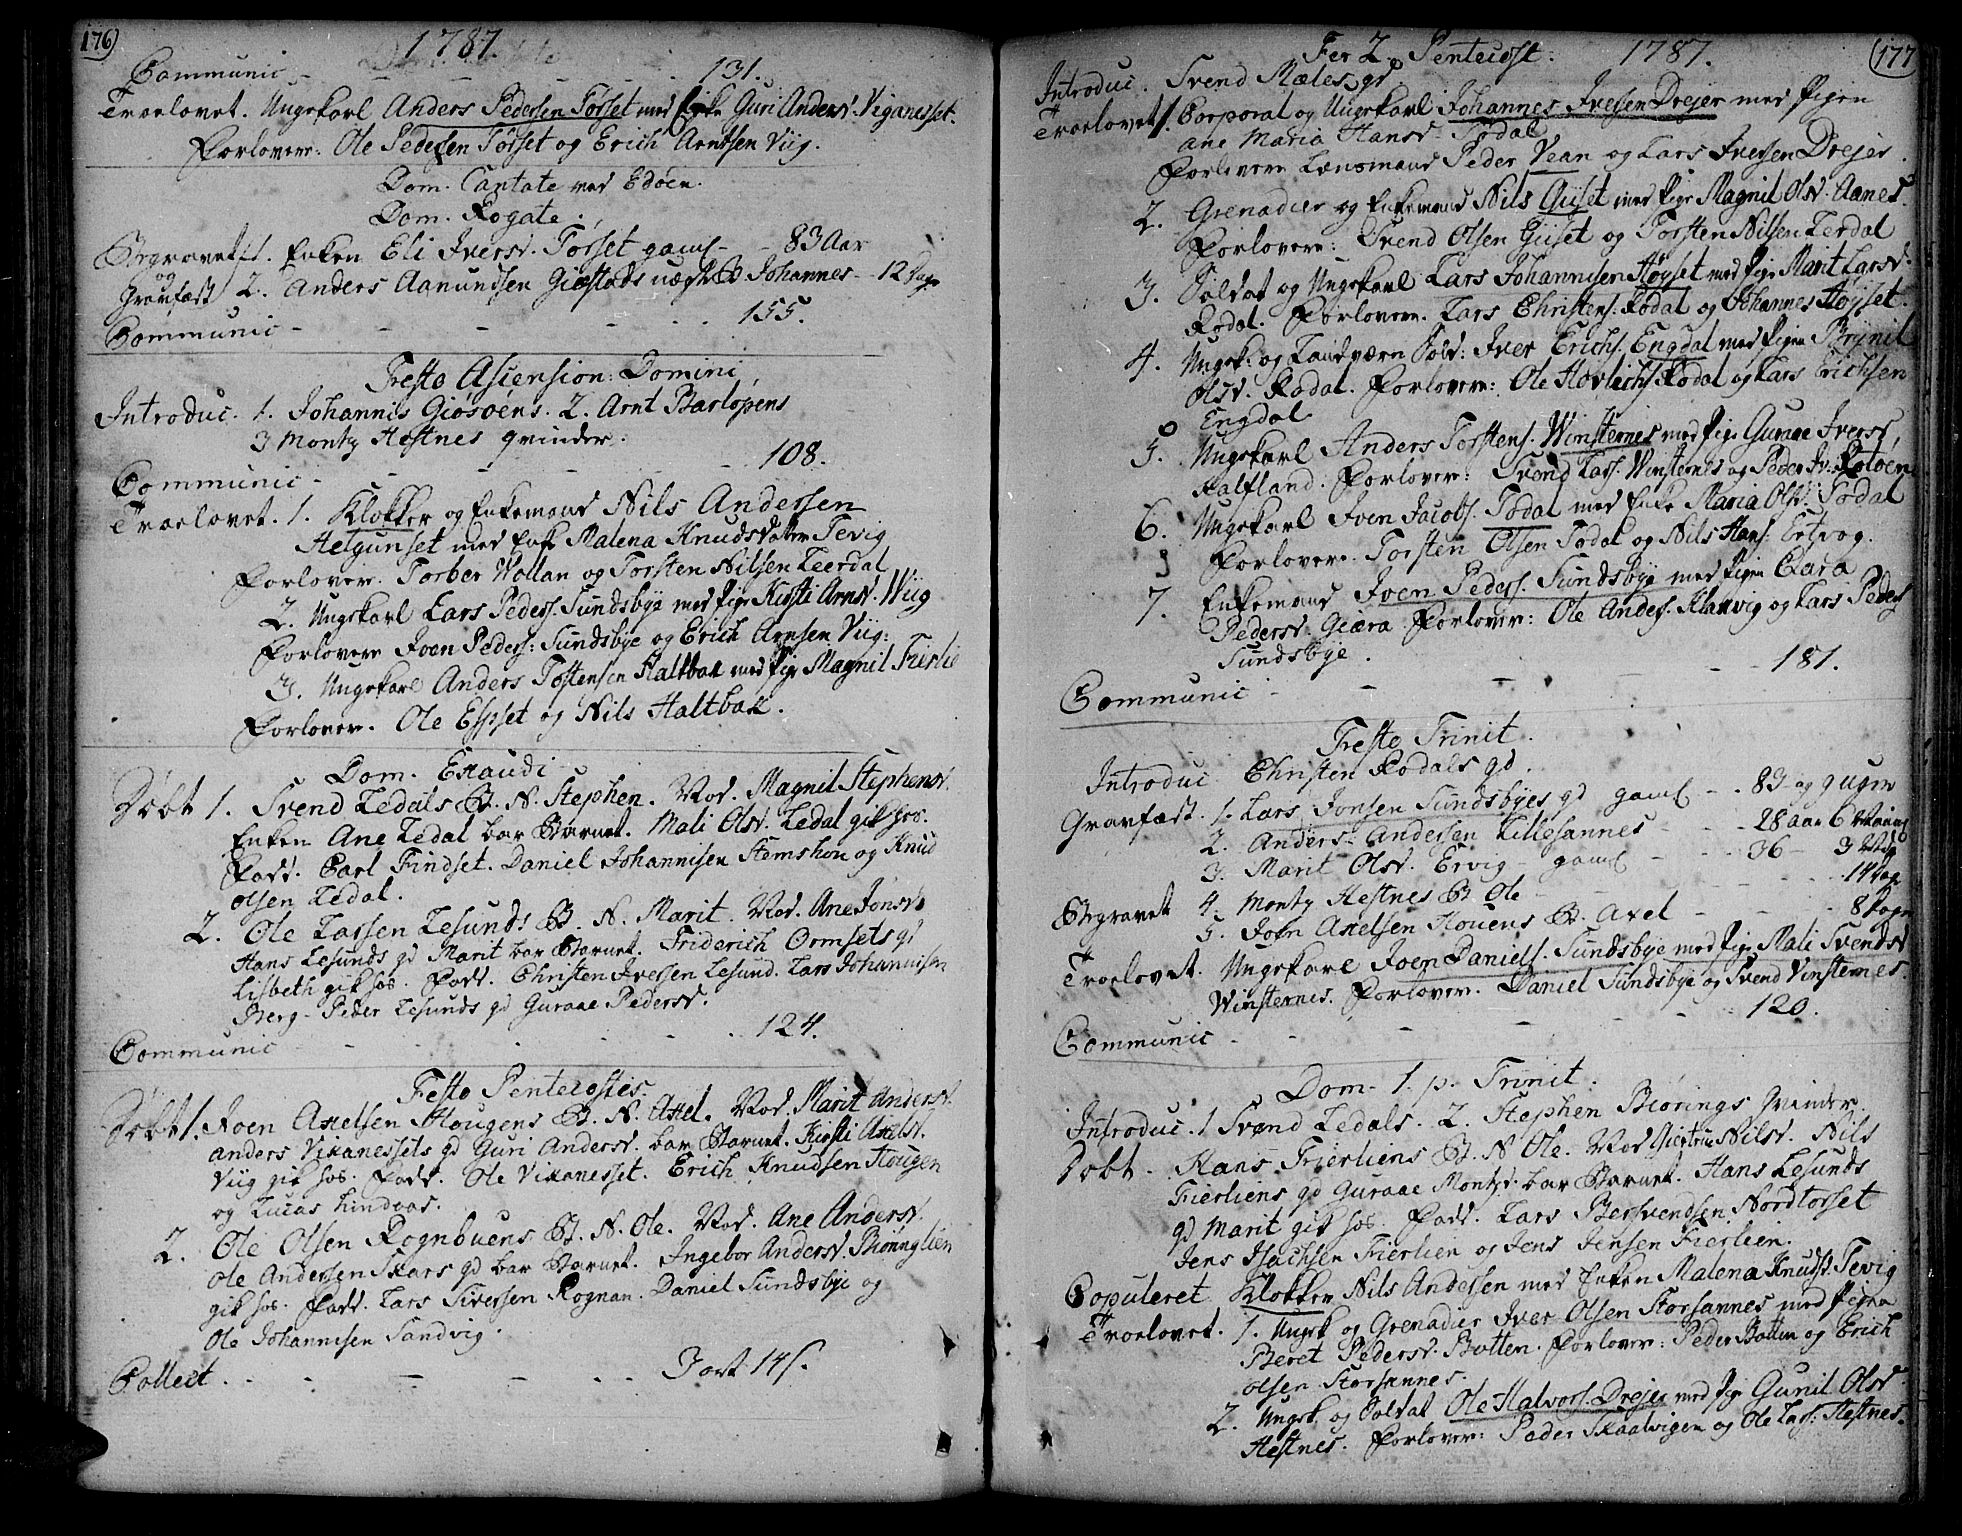 176)
1787
Communic - - - 131.
Troelovet. Ungekarl Anders Pedersen Torset med Enke Guri Andersd. Viganesset.
Forlovere: Ole Pedersen Torset og Erich Arntsen Viig.
Dom. Cantate ved Edøen.
Dom. Rogate.
Begravet 1. Enken Eli Iversd. Torset gaml - - 83 Aar
og
Gravfæst 2. Anders Aanundsen Giøstads Johannes - 12 Dage
Communic - - - - 155.
Festo Ascension: Domini,
Introduc. 1. Johannis Giøsøens. 2. Arnt Barlopens
3 Montz Hestnes qvinder.
Communic - - - - 108.
Troelovet. 1. Klokker og Enkemand Nils Andersen
Helgunset med Enke Malena Knudsdatter Tevig
Forlover. Torber Wollan og Torsten Nilsen Leerdal
2. Ungekarl Lars Peders. Sundsbye med Pige Kirsti Arnsd. Wiig
Forlovere Joen Peders: Sundsbye og Erich Arnsen Viig:
3. Ungekarl Anders Tostensen Haltbak med Pige Magnil Fierlie
Forlover. Ole Espset og Nils Haltbak.
Dom. Exaudi
Døbt 1. Svend Ledals B. N. Stephen. Mod. Magnil Stephensd.
Enken Ane Ledal bar Barnet. Mali Olsd. Ledal gik hos.
Fadd. Carl Findset. Daniel Johannisen Stemshou og Knud
Olsen Ledal.
2. Ole Larsen Lesunds B. N. Marit. Mod. Ane Jonsd.
Hans Lesunds qd Marit bar Barnet. Friderich Ormsets qd
Lisbeth gik hos. Fadd. Christen Iversen Lesund. Lars Johannisen
Berg - Peder Lesunds qd Guraae Pedersd.
Communic - - - - 124.
Festo Pentecostes.
Døbt 1. Joen Axelsen Hougens B. N. Axel. Mod. Marit Andersd.
Anders Vikanessets qd Guri Andersd. bar Barnet. Kirsti Axelsd.
Viig gik hos. Fadd. Ole Vikanesset. Erich Knudsen Hougen
og Lucas Lindvaas.
2. Ole Olsen Rognbuens B. N. Ole. Mod. Ane Andersd.
Ole Andersen Skars qd bar Barnet. Ingebor Andersd. Biørnglien
gik hos. Fadd. Lars Siversen Rognan. Daniel Sundsbye og
Ole Johannisen Sandvig.
Collect. - - - -
Fer 2. Pentecost: 1787. (177
Introduc. Svend Mæles qd.
Troelovet 1. Corporal og Ungekarl Johannes Iversen Drejer med Pigen
Ane Maria Hansd. Todal
Forlovere Lensmand Peder Vean og Lars Iversen Drejer.
2. Grenadier og Enkemand Nils Giiset med Pige Magnil Olsd. Aanes.
Forlovere: Svend Olsen Giiset og Torsten Nilsen Lerdal
3. Soldat og Ungekarl Lars Johannisen Høyset med Pige Marit Larsd.
Rodal. Forlovere. Lars Christens. Rodal og Johannes Høyset.
4. Ungek: og Landværn Sold: Iver Erichs. Engdal med Pigen Brynil
Olsd. Rodal. Forlovere: Ole Rodal og Lars Erichsen
Engdal
5. Ungekarl Anders Torstens. Winsternes med Pige Guraae Iversd.
Kalfland. Forlovere: Svend Lars. Winsternes og Peder
6. Ungekarl Joen Jacobs. Todal med Enke Maria Olsd. Todal
Forlovere. Torsten Olsen Todal og Nils Hans. Ertvog.
7. Enkemand Joen Peders. Sundsbye med Pigen Clara
Pedersd. Giæra. Forlovere: Ole Anders. Klakvig og Lars Peders
Sundsbye.
Communic - - - - 181.
Festo Trinit.
Introduc Christen Rodals qd.
Gravfæst. 1. Lars Jonsen Sundsbyes qd gaml - - 83 og 9 uger
2. Anders Andersen Lillesannes - - 28 aar 6
3. Marit Olsd. Ervig - gaml - - 36 - 3
Begravet 4. Montz Hestnes B. Ole - - - 14 dage
5. Joen Axelsen Houens B. Axel - - - 8 Dage
Troelovet. Ungekarl Joen Daniels. Sundsbye med Pige Mali Svendsd
Winsternes. Forlovere. Daniel Sundsbye og Svend Vinsternes.
Communic - - - - 120.
Dom. 1. p. Trinit.
Introduc. 1 Svend Ledals. 2. Stephen Biørings Qvinder
Døbt. Hans Fierliens B. N Ole. Mod Giertrue Nilsd. Nils
Fierliens qd Guraae Montzd. bar Barnet. Hans Lesunds
qd Marit gik hos. Fadd. Lars Bersvendsen Nordtorset
Jens Isachsen Fierlien og Jens Jensen Fierlien.
Copuleret Klokker Nils Andersen med Enken Malena Knudsd. Tevig
Troelovet. 1. Ungek og Grenadier Iver Olsen Storsannes med Pigen
Beret Pedersd. Botten. Forlover: Peder Botten og Erich
Olsen Storsannes.
2. Ungek. og Soldat Ole Halvors. Drejer med Pige Gunil Olsd
Hestnes. Forlover: Peder Skaalvigen og Ole Lars: Hestnes.